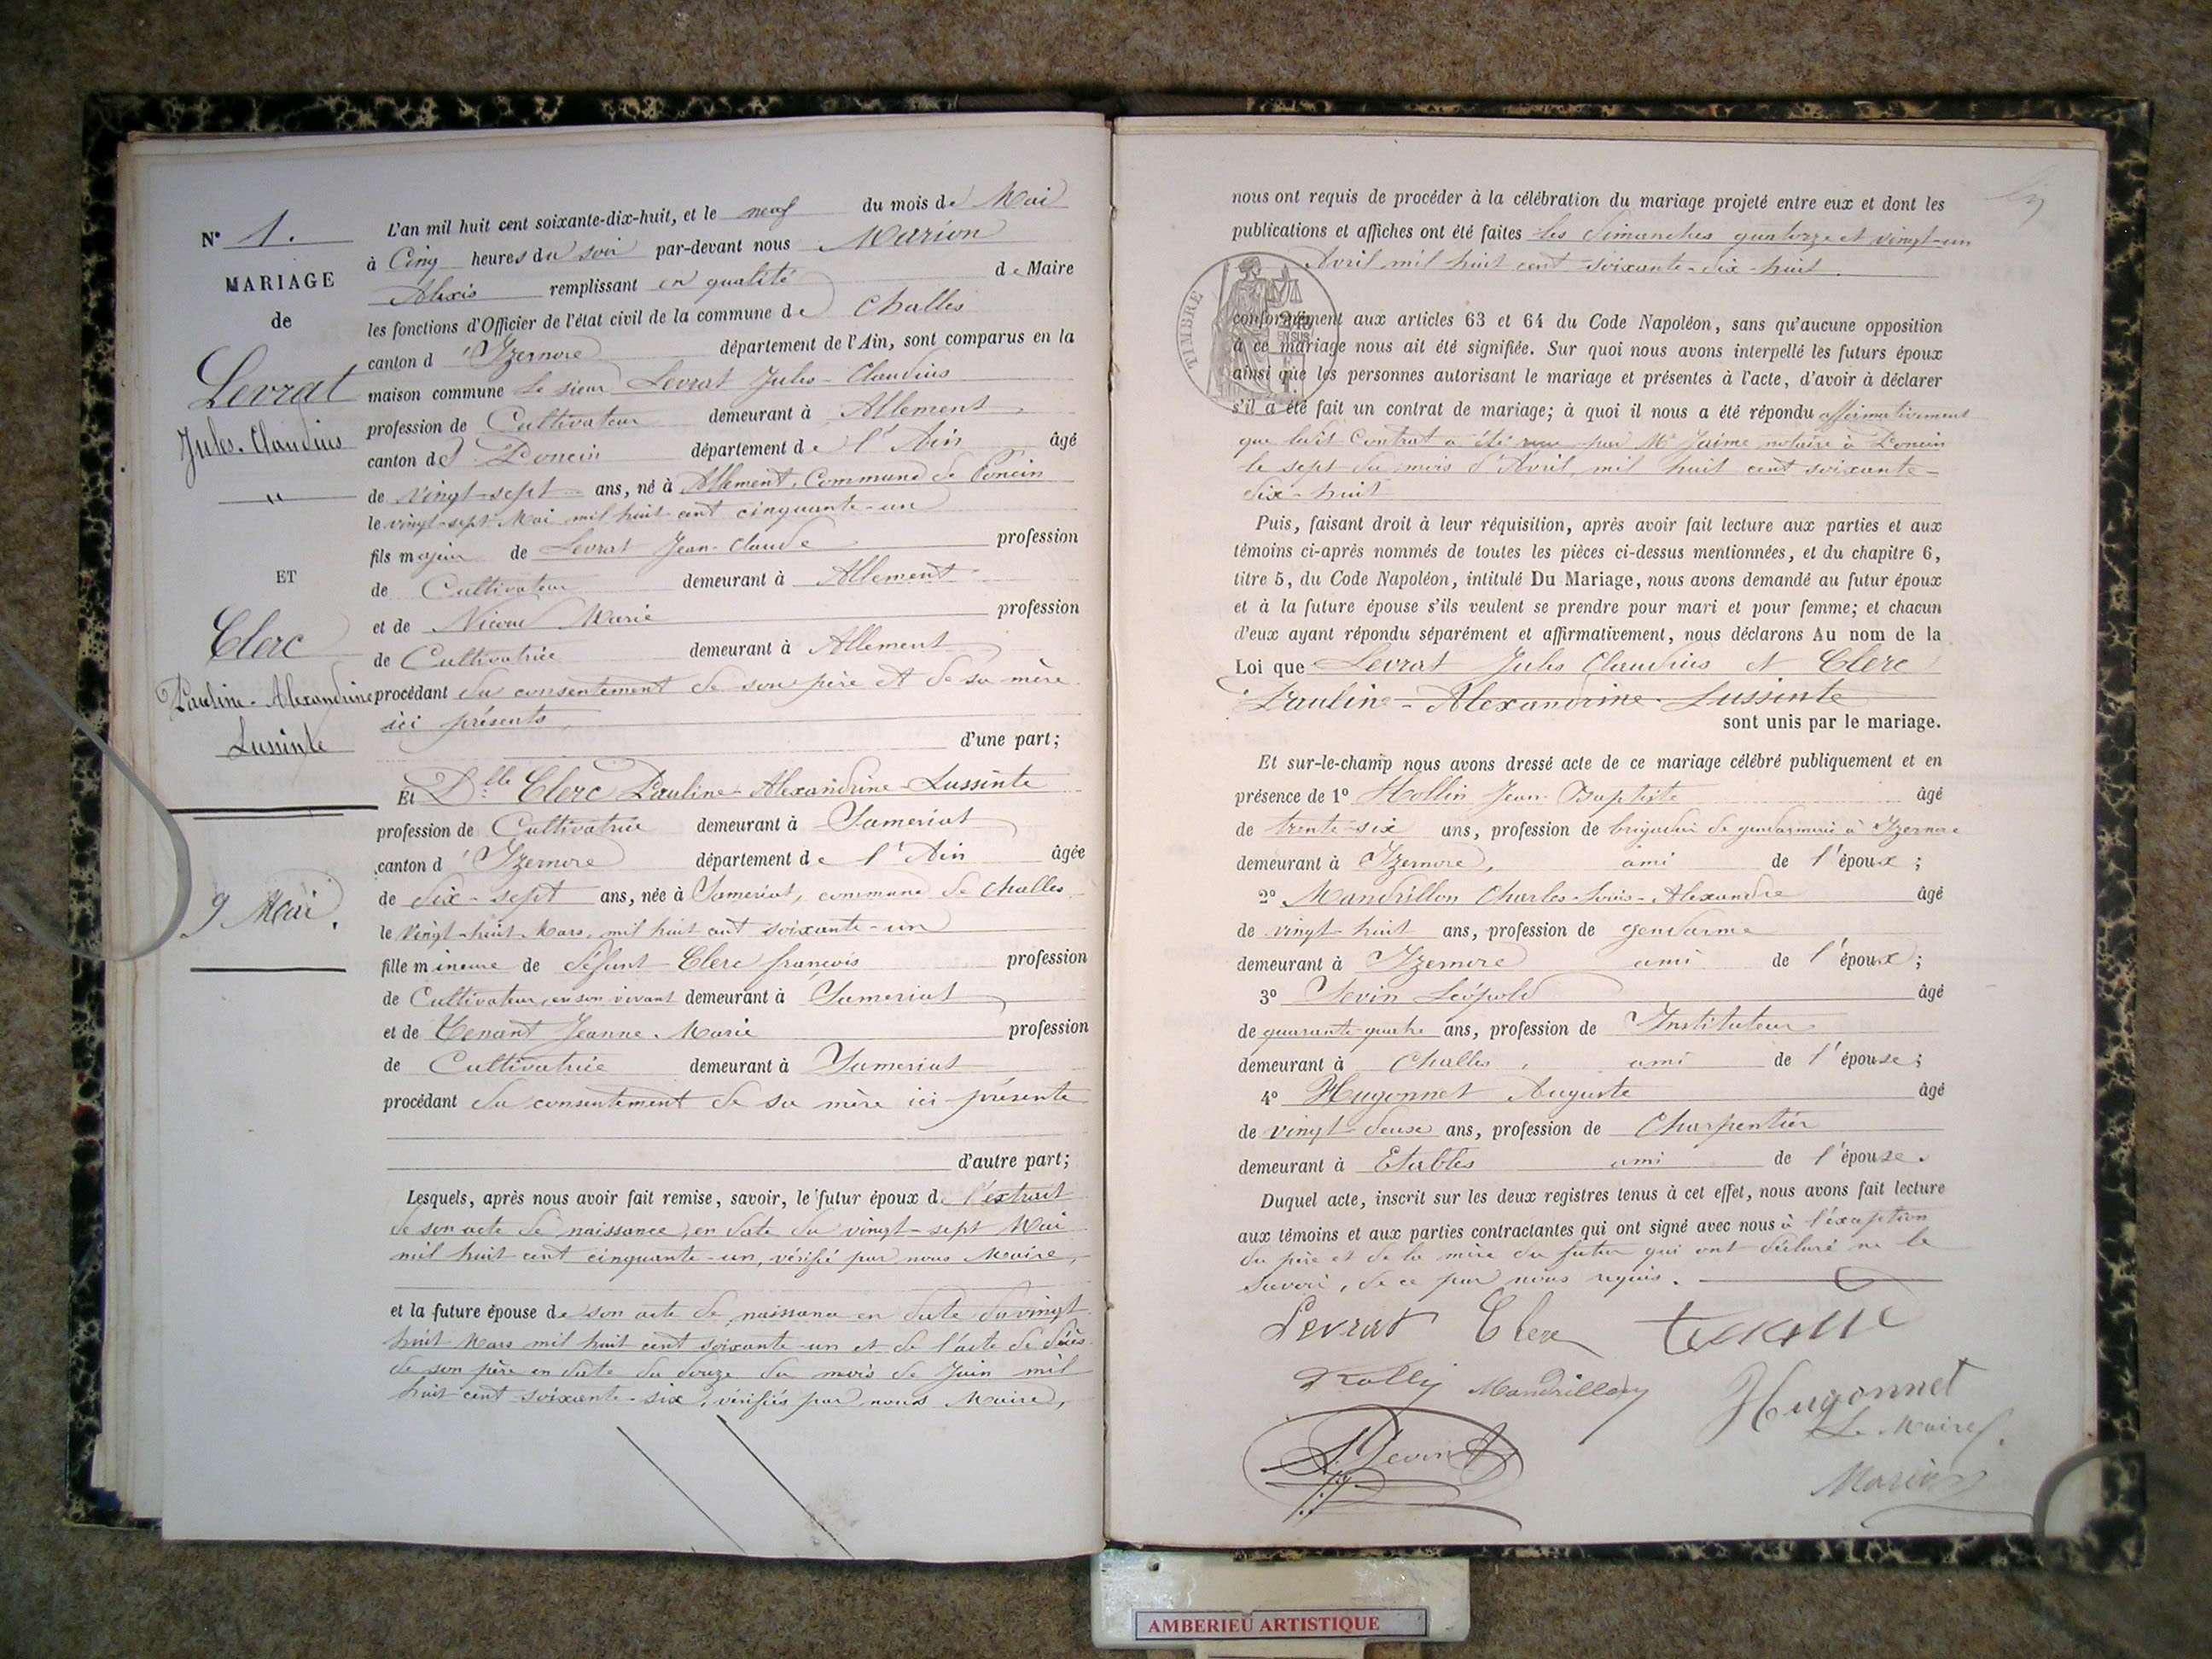 N° 1.
MARIAGE
de
Levrat
Jules-Claudius
ET
Clerc
Pauline-Alexandrine
Lussinte
9 Mai.
L'an mil huit cent soixante-dix-huit, et le neuf du mois de Mai
à Cinq heures du soir par-devant nous Marion
Alexis remplissant en qualité de Maire
les fonctions d'Officier de l'état civil de la commune de Challes
canton d'Izernore département de l'Ain, sont comparus en la
maison commune le sieur Levrat Jules-Claudius
profession de Cultivateur demeurant à Allement
canton de Poncin département de l'Ain âgé
de vingt-sept ans, né à Allement, Commune de Poncin
le vingt-sept Mai mil huit cent cinquante-un
fils majeur de Levrat Jean-Claude profession
de Cultivateur demeurant à Allement
et de Marie profession
de Cultivatrice demeurant à Allement
procédant du consentement de son père et de sa mère
ici présents
d'une part;
Et Dlle Clerc Pauline-Alexandrine-Lussinte
profession de Cultivatrice demeurant à Samériat
canton d'Izernore département de l'Ain âgée
de dix-sept ans, née à Samériat, commune de Challes
le vingt-huit Mars, mil huit cent soixante-un
fille mineure de défunt Clerc françois profession
de Cultivateur, en son vivant demeurant à Samériat
et de Tenant Jeanne-Marie profession
de Cultivatrice demeurant à Samériat
procédant du consentement de sa mère ici présente
d'autre part;
Lesquels, après nous avoir fait remise, savoir, le futur époux de l'extrait
de son acte de naissance, en date du vingt-sept Mai
mil huit cent cinquante-un, vérifié par nous Maire,
et la future épouse de son acte de naissance en date du vingt
huit Mars mil huit cent soixante-un et de l'acte de décès
de son père en date du douze du mois de Juin mil
huit cent soixante-six, vérifiés par nous Maire,
nous ont requis de procéder à la célébration du mariage projeté entre eux et dont les
publications et affiches ont été faites les dimanches quatorze et vingt-un
Avril mil huit cent soixante-dix-huit.
TIMBRE
conformément aux articles 63 et 64 du Code Napoléon, sans qu'aucune opposition
à ce mariage nous ait été signifiée. Sur quoi nous avons interpellé les futurs époux
ainsi que les personnes autorisant le mariage et présentes à l'acte, d'avoir à déclarer
s'il a été fait un contrat de mariage; à quoi il nous a été répondu affirmativement
que ledit Contrat a été reçu par Me Jaime notaire à Poncin
le sept du mois d'Avril, mil huit cent soixante-
dix-huit
Puis, faisant droit à leur réquisition, après avoir fait lecture aux parties et aux
témoins ci-après nommés de toutes les pièces ci-dessus mentionnées, et du chapitre 6,
titre 5, du Code Napoléon, intitulé Du Mariage, nous avons demandé au futur époux
et à la future épouse s'ils veulent se prendre pour mari et pour femme; et chacun
d'eux ayant répondu séparément et affirmativement, nous déclarons Au nom de la
Loi que Levrat Jules Claudius et Clerc
Pauline-Alexandrine-Lussinte
sont unis par le mariage.
Et sur-le-champ nous avons dressé acte de ce mariage célébré publiquement et en
présence de 1° Jean-Baptiste âgé
de trente-six ans, profession de brigadier de gendarmerie à Izernore
demeurant à Izernore, ami de l'époux;
2° Mandrillon Charles-Louis-Alexandre âgé
de vingt-huit ans, profession de gendarme
demeurant à Izernore ami de l'époux;
3° Sevin Léopold âgé
de quarante-quatre ans, profession de Instituteur
demeurant à Challes, ami de l'épouse;
4° Hugonnet Auguste âgé
de vingt-deux ans, profession de Charpentier
demeurant à Etables ami de l'épouse.
Duquel acte, inscrit sur les deux registres tenus à cet effet, nous avons fait lecture
aux témoins et aux parties contractantes qui ont signé avec nous à l'exception
du père et de la mère du futur qui ont déclaré ne le
savoir, de ce par nous requis.
Levrat Clerc
Mandrillon Hugonnet
Le Maire
Sevin Marion
AMBERIEU ARTISTIQUE